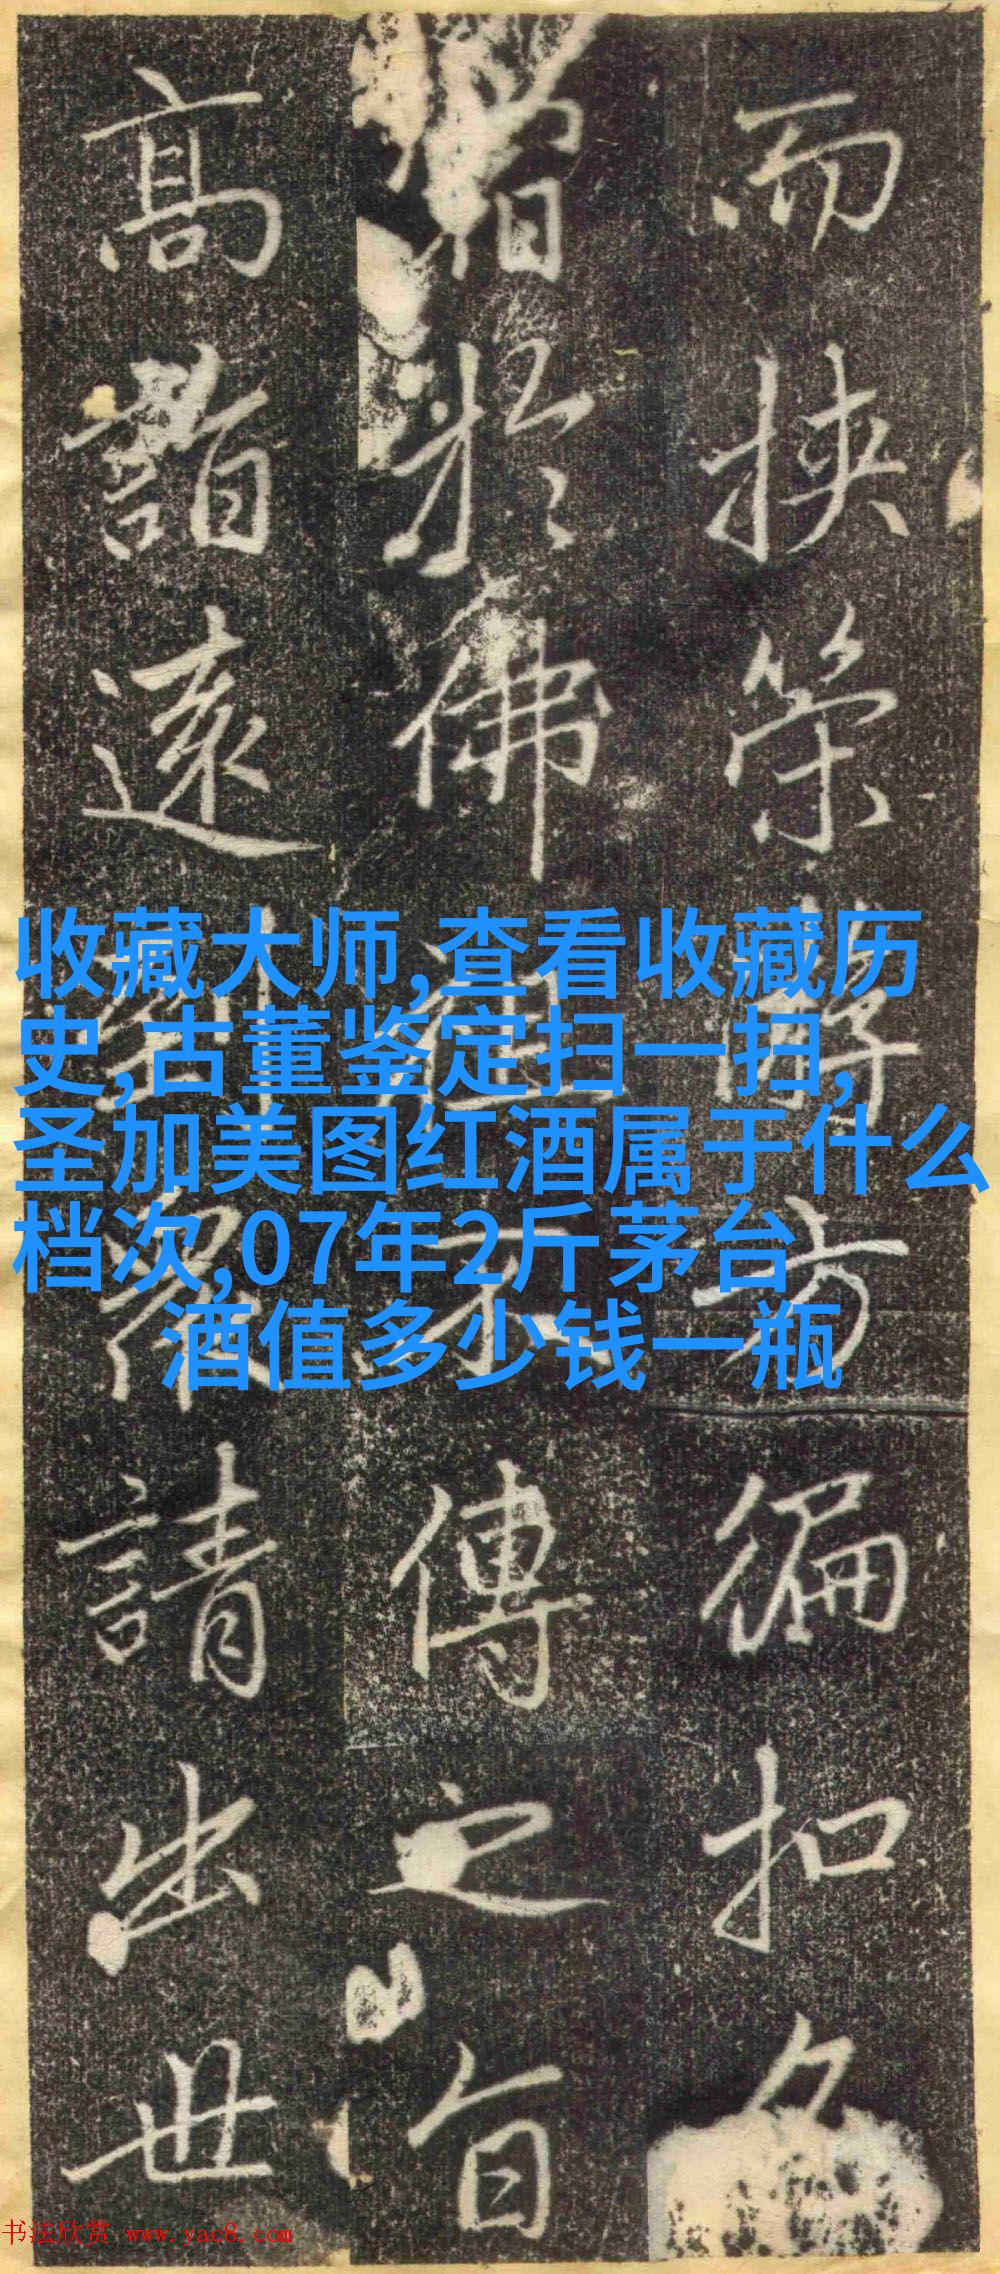 而挾策
方徧扣
於佛
不傳之旨
高詣遠
請出世
收藏大师,查看收藏历
史,古董鉴定扫一扫,
圣加美图红酒属于什么
档次,07年2斤茅台
酒值多少钱一瓶
书法欣赏 www.yac8.com